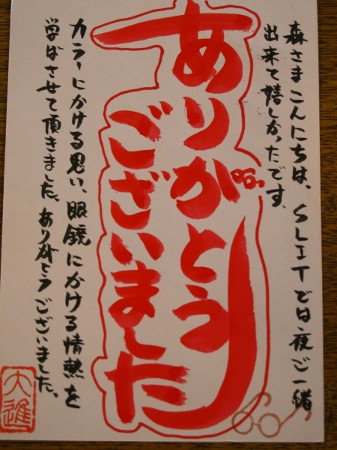 森さまこんにちは、SLITでは夜ご一緒
出来て嬉しかったです。
ありがとう
ございました
カラーにかける思い、眼鏡にかける情熱を
学ばさせて頂きました。ありがとうございました。
大進